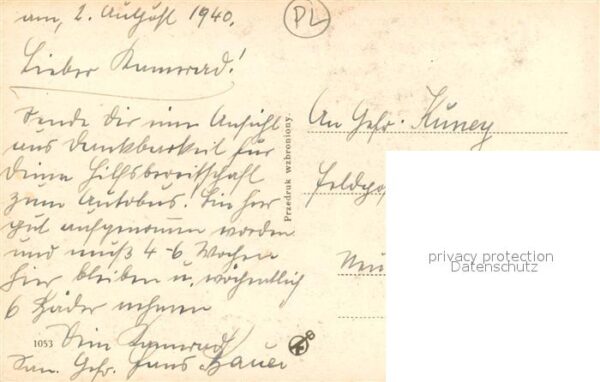 am, 2. August 1940.
PL
Lieber Kamerad!
Sende dir eine Ansicht
aus Dankbarkeit für
Deine Hilfsbereitschaft
zum Autobus. Bin hier
gut aufgenommen worden
und muß 4-6 Wochen
hier bleiben u. wöchentlich
6 Bäder nehmen
Dein Kamerad
San. Gefr. Hans Bauer
1053
Przedruk wzbroniony.
An Gefr. Kuney
Feldpo
Neu
privacy protection
Datenschutz